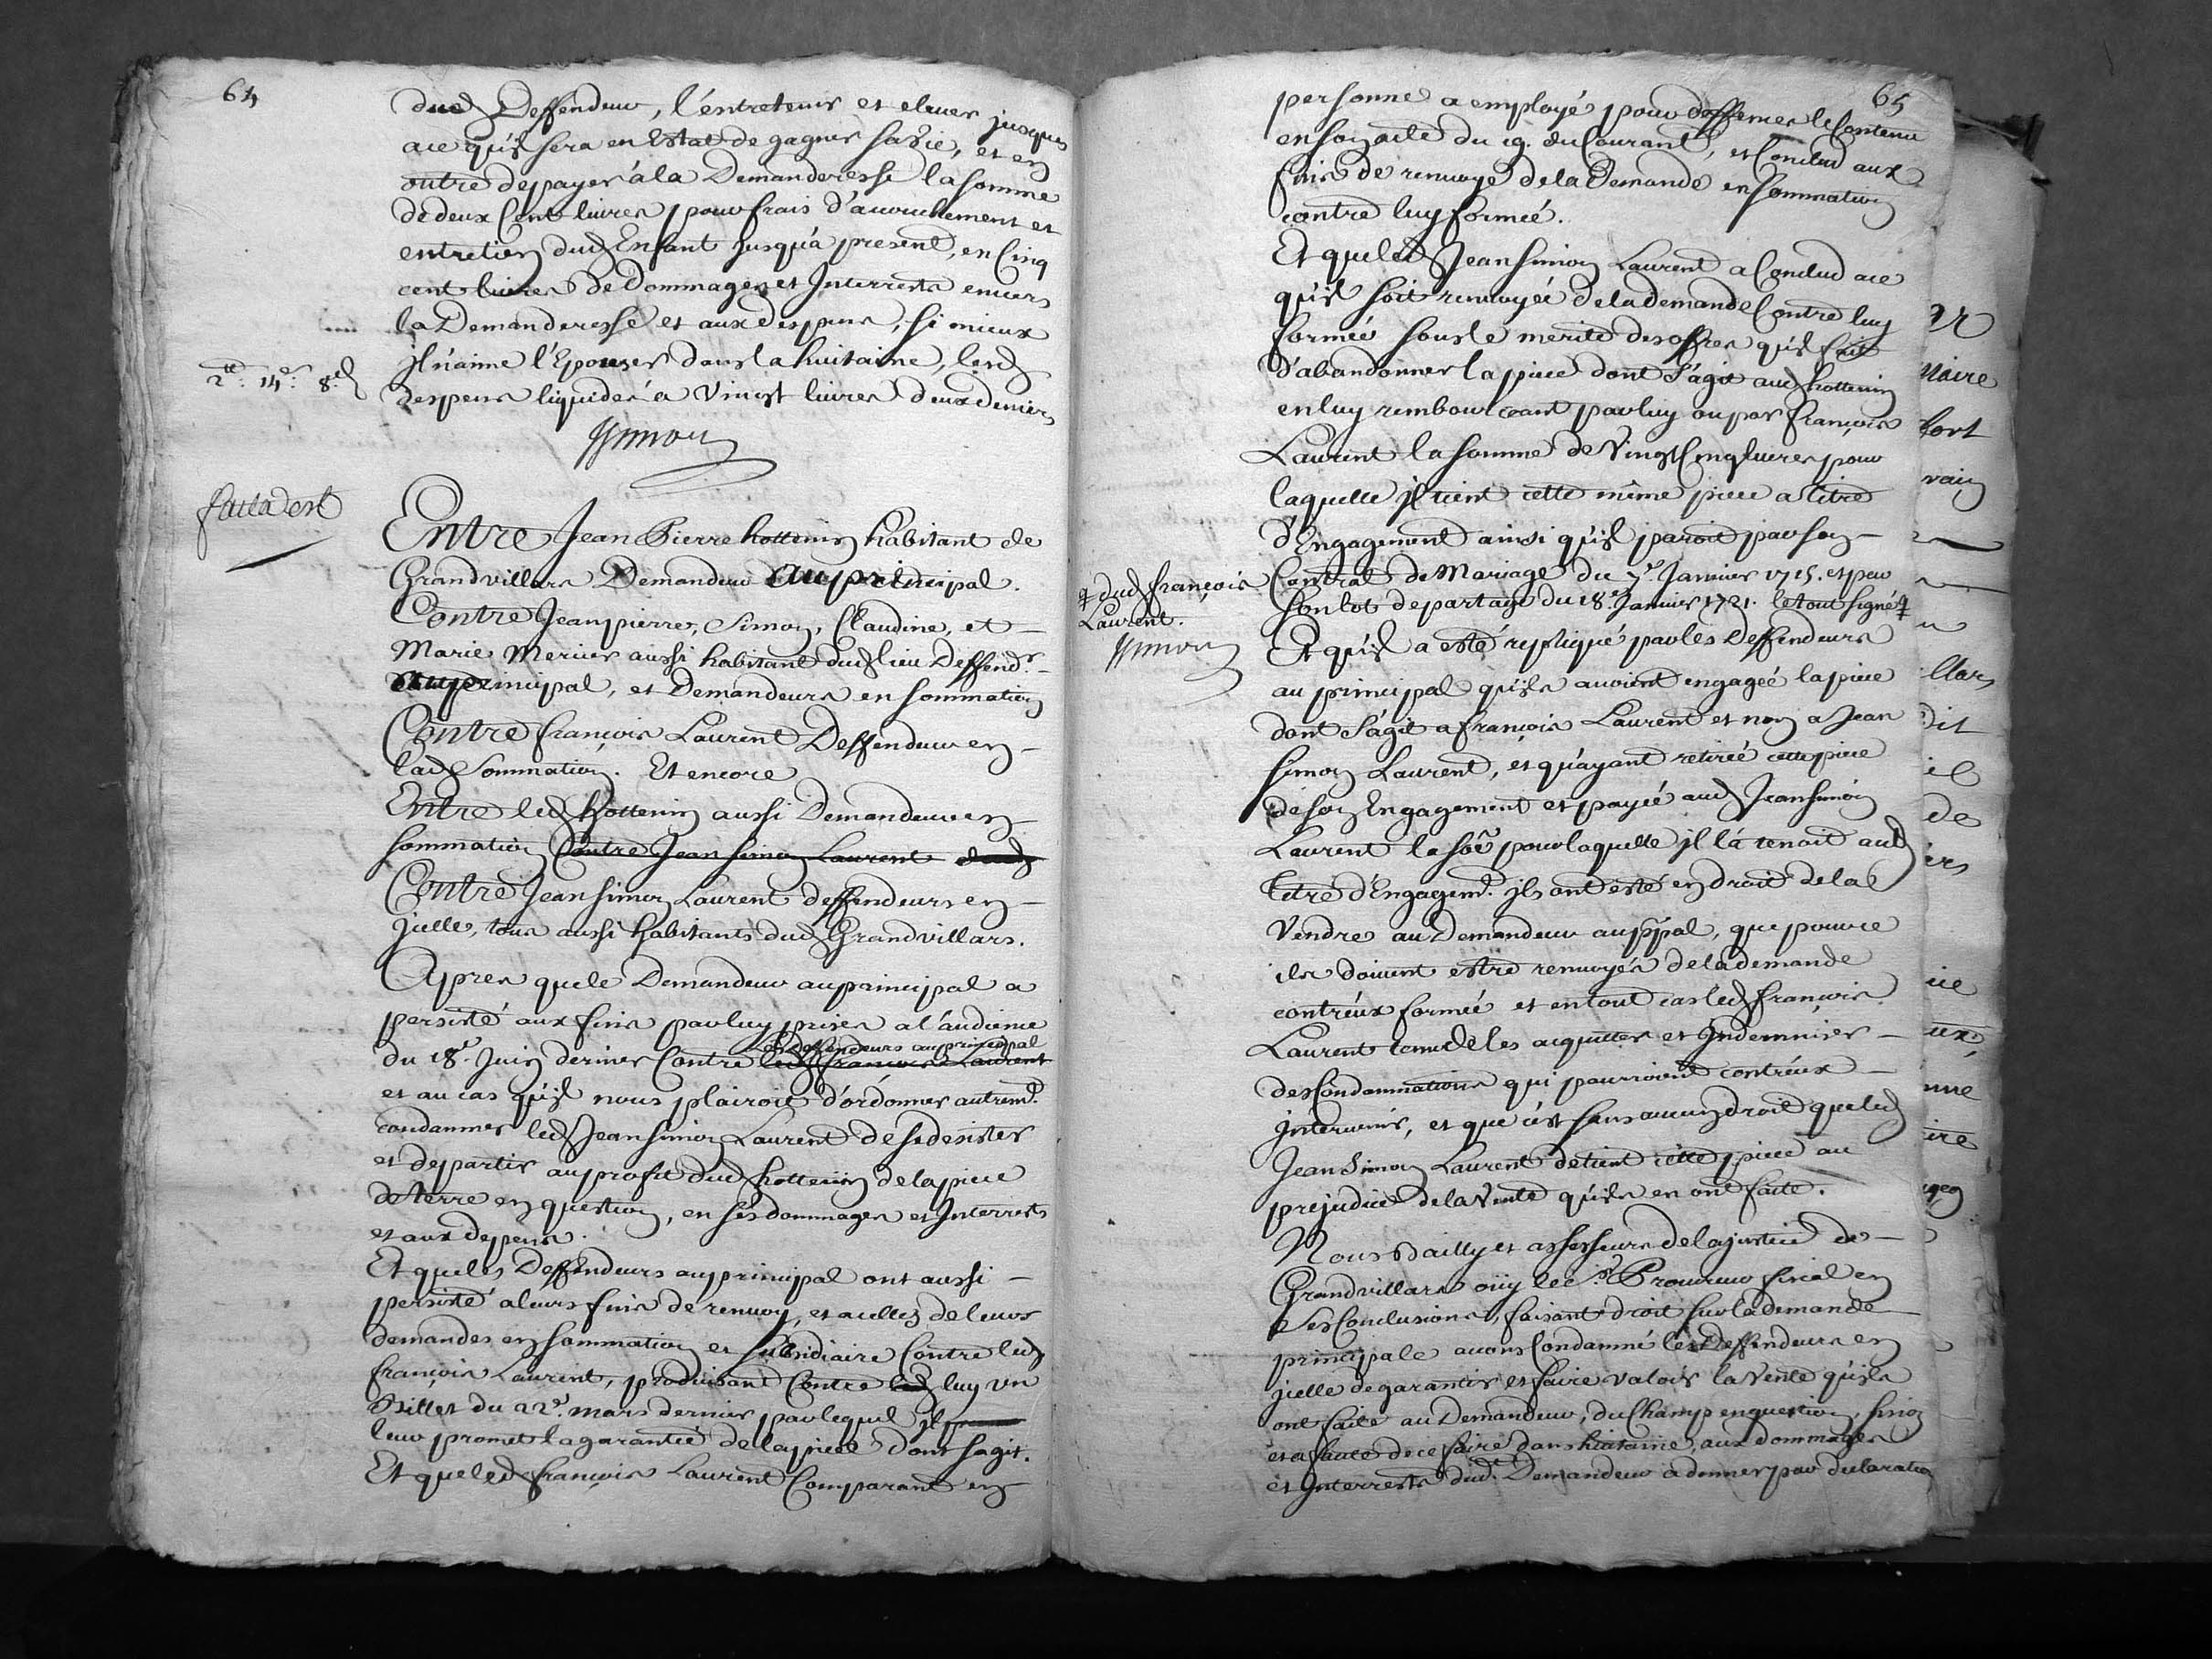 64
dud Deffendeur, l'entretenir et elever jusques
a ce qu'il sera en Estat de gagner sa vie, et en
outre de payer à la Demanderesse la somme
de deux Cent livres pour frais d'acouchement et
entretien dud Enfant jusqu'à present, en Cinq
cent livres de Dommages et Interrests envers
la Demanderesse et aux despens, si mieux
Jl n'aime l'Epouser dans la huitaine, lesd
2tt. 14s. 8d
despens liquidés à Vingt livres deux deniers
fait adest
Entre Jean Pierre hottenin habitant de
Grandvillars Demandeur au principal.
Contre Jean pierre, Simon, Claudine, et
Marie Mercier aussi habitant dud lieu Deffendrs
au principal, et Demandeurs en sommation
Contre françois Laurent Deffendeur en
lad Sommation. Et encore
Entre led hottenin aussi Demandeur en
sommation Contre Jean simon Laurent
Contre Jean simon Laurent deffendeurs en
jcelle, tous aussi habitants dud Grandvillars.
Apres que le Demandeur au principal a
persisté aux fins par luy prises a l'audience
les deffendeurs au principal
du 18e. Juin dernier Contre led françois Laurent
et au cas qu'il nous plairoit d'ordonner autremt.
condamner led Jean simon Laurent de se desister
et departir au profit dud hottenin de la piece
de terre en question, en ses dommages et Interrests
et aux depens.
Et que les Deffendeurs au principal ont aussi
persisté a leurs fins de renvoy, et a celles de leurs
demandes en sommation et subsidiaire Contre led
françois Laurent, produisant Contre led luy un
Billet du 22e. mars dernier par lequel jl
leur promet la garantie de la piece dont sagit.
Et que led françois Laurent Comparant en
65
personne a employé pour deffenses le Contenu
en son acte du 19. du Courant, et Conclud aux
fins de renvoye de la Demande en sommation
contre luy formée.
Et que led Jean simon Laurent a Conclud a ce
qu'il soit renvoyée de la demande Contre luy
formée sous le merite des offres qu'il fait
d'abandonner la piece dont s'agit aud hottenin
en luy rembourceant par luy ou par françois
Laurent la somme de Vingt Cinq livres pour
laquelle jl tient cette même piece a titre
d'Engagement ainsi qu'il paroit par son
Contrat de Mariage du 7e. Janvier 1715. et par
son lot de partage du 18e. Janvier 1721. le tout signé
dud françois
Laurent.
Et qu'il a esté repliqué par les Deffendeurs
au principal qu'ils avoient engagée la piece
dont s'agit a françois Laurent et non a Jean
simon Laurent, et qu'ayant retirée cette piece
de son Engagement et payée aud Jean simon
Laurent la soe pour laquelle jl la tenoit aud
titre d'Engagemt. jls ont esté en droit de la
Vendre au Demandeur au ppal, que pour ce
ils doivent estre renvoyés de la demande
contr'eux formée et en tout cas led françois
Laurent tenu de les acquitter et Indemniser
des Condamnations qui pourroient contr'eux
jntervenir, et que c'est sans aucun droit que led
Jean Simon Laurent detient cette piece au
prejudice de la Vente qu'ils en ont faite.
Nous Bailly et assesseurs de la justice de
Grandvillars oüy le Sr. Procureur fiscal en
ses Conclusions, faisant droit sur la demande
principale avons Condamné les Deffendeurs en
jcelle de garantir et faire valoir la Vente qu'ils
ont faite au Demandeur, du Champ en question, sinon
et a faute de ce faire dans huitaine, aux dommages
et Interrests dud. Demandeur a donner par declaration